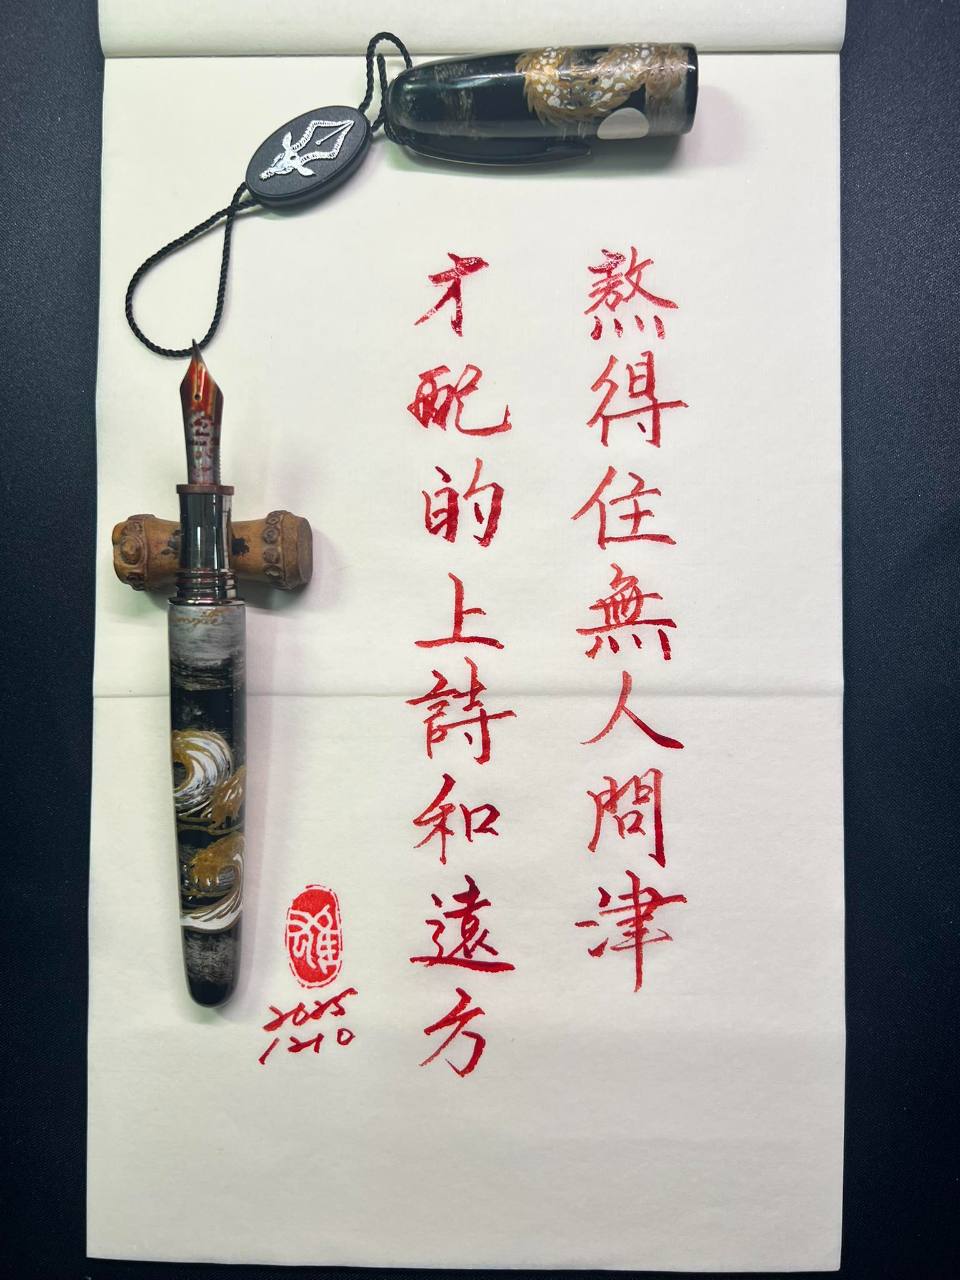 熬得住無人問津
才配的上詩和遠方
2025
1210